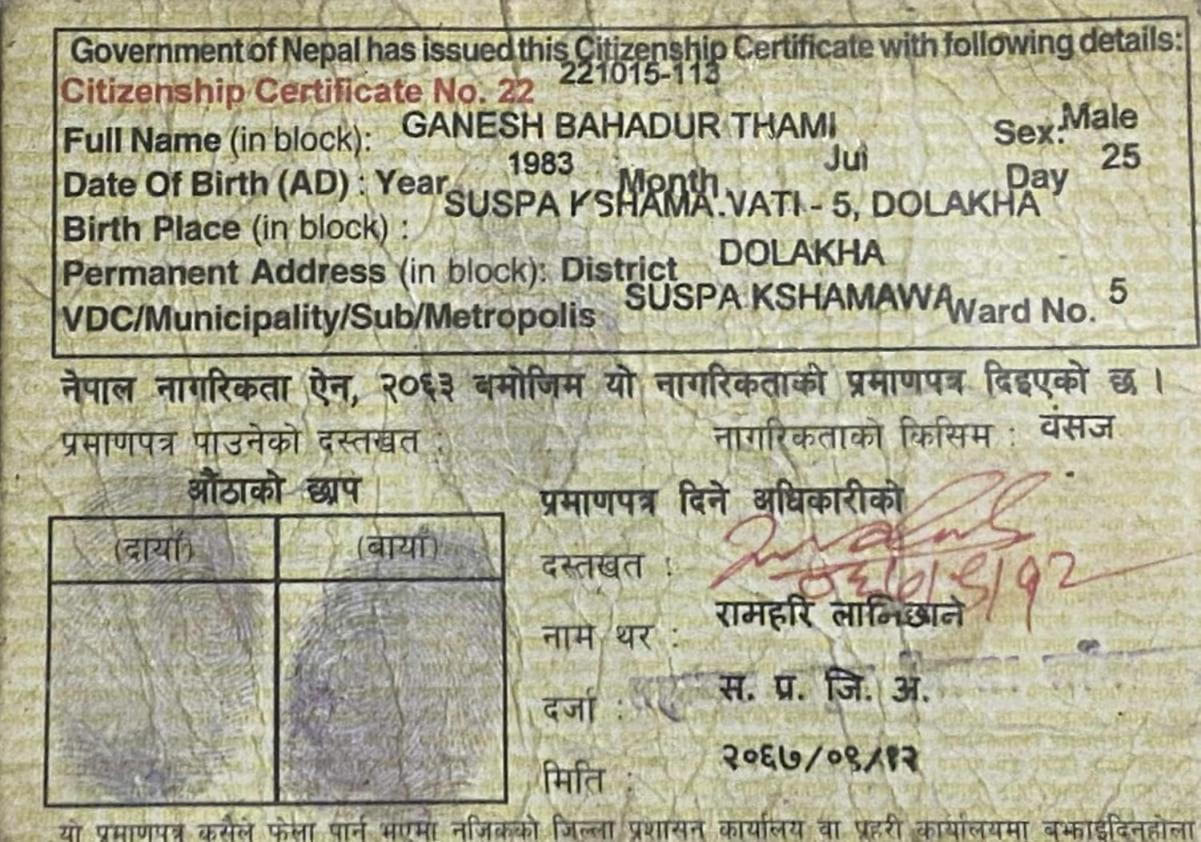 Government of Nepal has issued this Citizenship Certificate with following details:
Citizenship Certificate No. 22 221015-113
Full Name (in block): GANESH BAHADUR THAMI Sex: Male
Date Of Birth (AD) : Year 1983 Month Jul Day 25
Birth Place (in block) : SUSPA KSHAMA.VATI - 5, DOLAKHA
Permanent Address (in block): District DOLAKHA
VDC/Municipality/Sub/Metropolis SUSPA KSHAMAWA Ward No. 5
नेपाल नागरिकता ऐन, २०६३ बमोजिम यो नागरिकताको प्रमाणपत्र दिइएको छ ।
प्रमाणपत्र पाउनेको दस्तखत : नागरिकताको किसिम : वंसज
औंठाको छाप
(दायाँ) (बायाँ)
प्रमाणपत्र दिने अधिकारीको
दस्तखत :
नाम थर : रामहरि लामिछाने
दर्जा : स. प्र. जि. अ.
मिति : २०६७/०९/१२
यो प्रमाणपत्र कसैले फेला पार्नु भएमा नजिकको जिल्ला प्रशासन कार्यालय वा प्रहरी कार्यालयमा बुझाइदिनुहोला